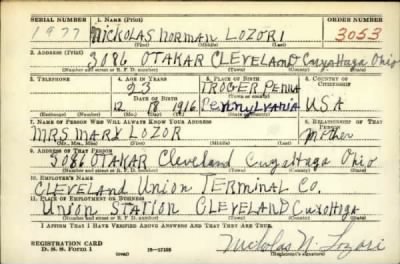 SERIAL NUMBER 1. NAME (Print) ORDER NUMBER
1977 NICKOLAS NORMAN LOZORI 3053
(First) (Middle) (Last)
2. ADDRESS (Print)
3086 OTAKAR CLEVELAND Cuyahoga Ohio
(Number and street or R. F. D. number) (Town) (County) (State)
3. TELEPHONE 4. AGE IN YEARS 5. PLACE OF BIRTH 6. COUNTRY OF CITIZENSHIP
23 TROGER PENNA
DATE OF BIRTH (Town or county)
12 8 1916 Pennsylvania U.S.A.
(Exchange) (Number) (Mo.) (Day) (Yr.) (State or country)
7. NAME OF PERSON WHO WILL ALWAYS KNOW YOUR ADDRESS 8. RELATIONSHIP OF THAT PERSON
MRS MARY LOZOR Mother
(Mr., Mrs., Miss) (First) (Middle) (Last)
9. ADDRESS OF THAT PERSON
3086 OTAKAR Cleveland Cuyahoga Ohio
(Number and street or R. F. D. number) (Town) (County) (State)
10. EMPLOYER'S NAME
CLEVELAND UNION TERMINAL CO.
11. PLACE OF EMPLOYMENT OR BUSINESS
UNION STATION CLEVELAND CUYOHOGA
(Number and street or R. F. D. number) (Town) (County) (State)
I AFFIRM THAT I HAVE VERIFIED ABOVE ANSWERS AND THAT THEY ARE TRUE.
REGISTRATION CARD
D. S. S. Form 1 16—17105 Nickolas N. Lozori
(Registrant's signature)